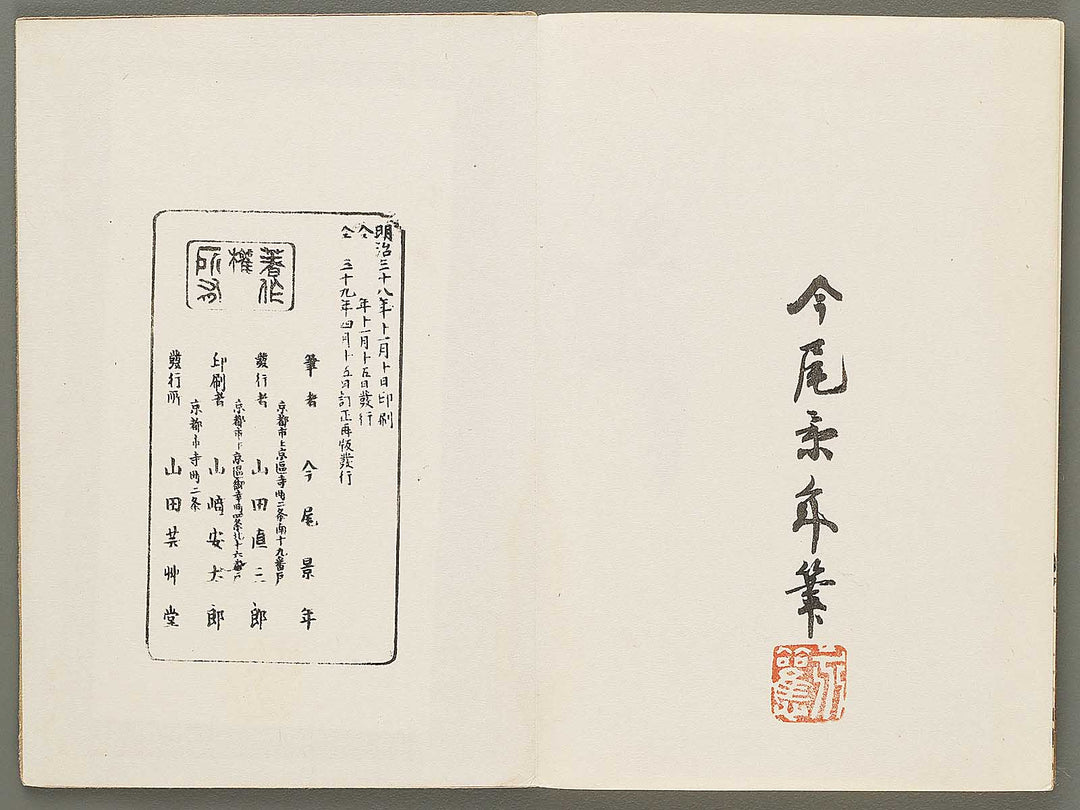 今尾景年筆
明治三十八年十一月十日印刷
仝 年十一月十五日發行
仝 三十九年四月十五日訂正再版發行
著作權所有
筆者 今尾景年
京都市上京區寺町二条南十九番戶
發行者 山田直三郎
京都市下京區御幸町四条北十六番戶
印刷者 山﨑安太郎
京都市寺町二条
發行所 山田芸艸堂